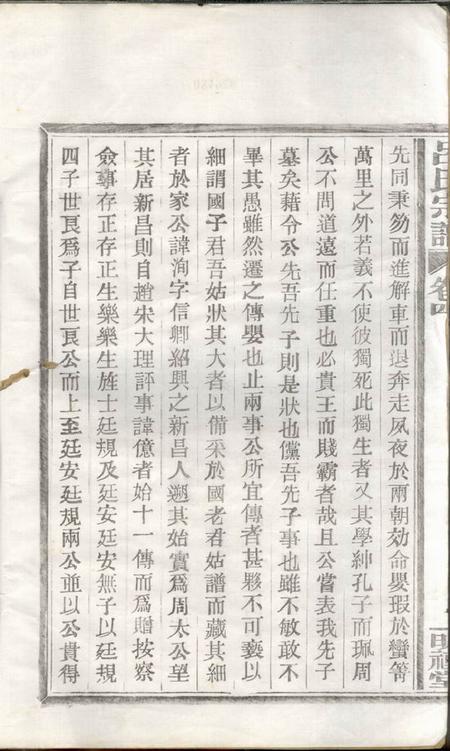 呂氏宗譜 卷四
明禋堂
先同秉笏而進解車而退奔走夙夜於兩朝効命嬰瑕於蠻箐
萬里之外若義不使彼獨死此獨生者又其學紳孔子而珮周
公不問道遠而任重也必貴王而賤霸者哉且公嘗表我先子
墓矣藉令公先吾先子則是狀也儻吾先子事也雖不敏敢不
畢其愚雖然遷之傳嬰也止兩事公所宜傳者甚夥不可褻以
細謂國子君吾姑狀其大者以備采於國老君姑譜而藏其細
者於家公諱洵字信卿紹興之新昌人遡其始實爲周太公望
其居新昌則自趙宋大理評事諱億者始十一傳而爲贈按察
僉事存正存正生樂樂生旌士廷規及廷安廷安無子以廷規
四子世良爲子自世良公而上至廷安廷規兩公並以公貴得